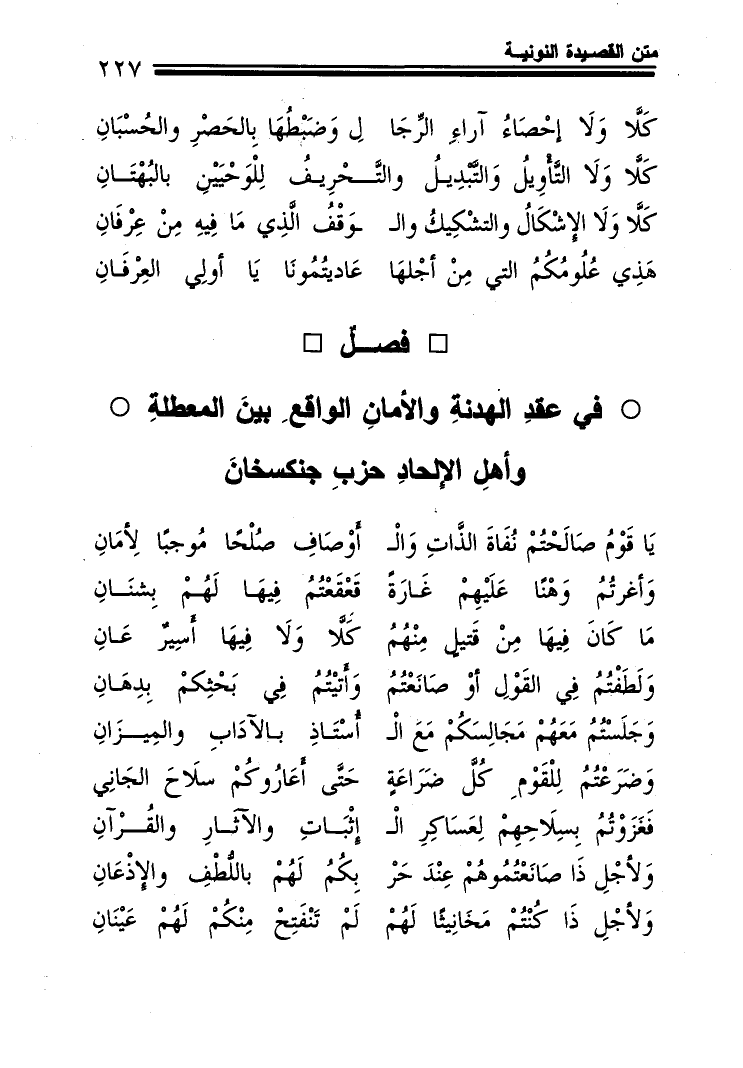 متن القصيدة النونية
٢٢٧
كَلَّا وَلَا إِحْصَاءُ آراءِ الرِّجَا لِ وَضَبْطُهَا بِالحَصْرِ والحُسْبَانِ
كَلَّا وَلَا التَّأْوِيلُ وَالتَّبْدِيلُ والتَّحْرِيفُ لِلْوَحْيَيْنِ بالبُهْتَانِ
كَلَّا وَلَا الإِشْكَالُ والتشْكِيكُ والـ ـوَقْفُ الَّذِي مَا فِيهِ مِنْ عِرْفَانِ
هَذِي عُلُومُكُمُ التي مِنْ أجْلهَا عَاديتُمُونَا يَا أولي العِرْفَـانِ
□ فصـــل □
○ في عقدِ الهدنةِ والأمانِ الواقعِ بينَ المعطلةِ ○
وأهلِ الإلحادِ حزبِ جنكسخانَ
يَا قَوْمُ صَالَحْتُمْ نُفَاةَ الذَّاتِ وَالْـ أَوْصَافِ صُلْحًا مُوجبًا لِأمَانِ
وَأغرتُمُ وَهْنًا عَلَيْهِمْ غَـارَةً قَعْقَعْتُمُ فِيهَـا لَهُـمْ بِشنَـانِ
مَا كَانَ فِيهَا مِنْ قَتيلٍ مِنْهُمُ كَلَّا وَلَا فِيهَا أَسِيرٌ عَـانِ
وَلَطَفْتُمُ فِي القَوْلِ أوْ صَانَعْتُمُ وَأَتيْتُمُ فِي بَحْثِكمْ بِدِهَـانِ
وَجَلَسْتُمُ مَعَهُمْ مَجَالِسَكُمْ مَعَ الْـ أُسْتَـاذِ بـالآدَابِ والمِيـزَانِ
وَضَرَعْتُمُ لِلْقَوْمِ كُلَّ ضَرَاعَةٍ حَتَّى أَعَارُوكُمْ سلَاحَ الجَانِي
فَغَزَوْتُمُ بِسِلَاحِهِمْ لِعَسَاكِرِ الْـ إِثْبَـاتِ والآثَـارِ والقُـرْآنِ
وَلأجْلِ ذَا صَانَعْتُمُوهُمْ عِنْدَ حَرْ بِكُمُ لَهُمْ باللُّطْفِ والإِذْعَانِ
وَلأجْلِ ذَا كُنْتُمْ مَخَانِيثًا لَهُمْ لَمْ تَنْفَتِحْ مِنْكُمْ لَهُمْ عَيْنَانِ